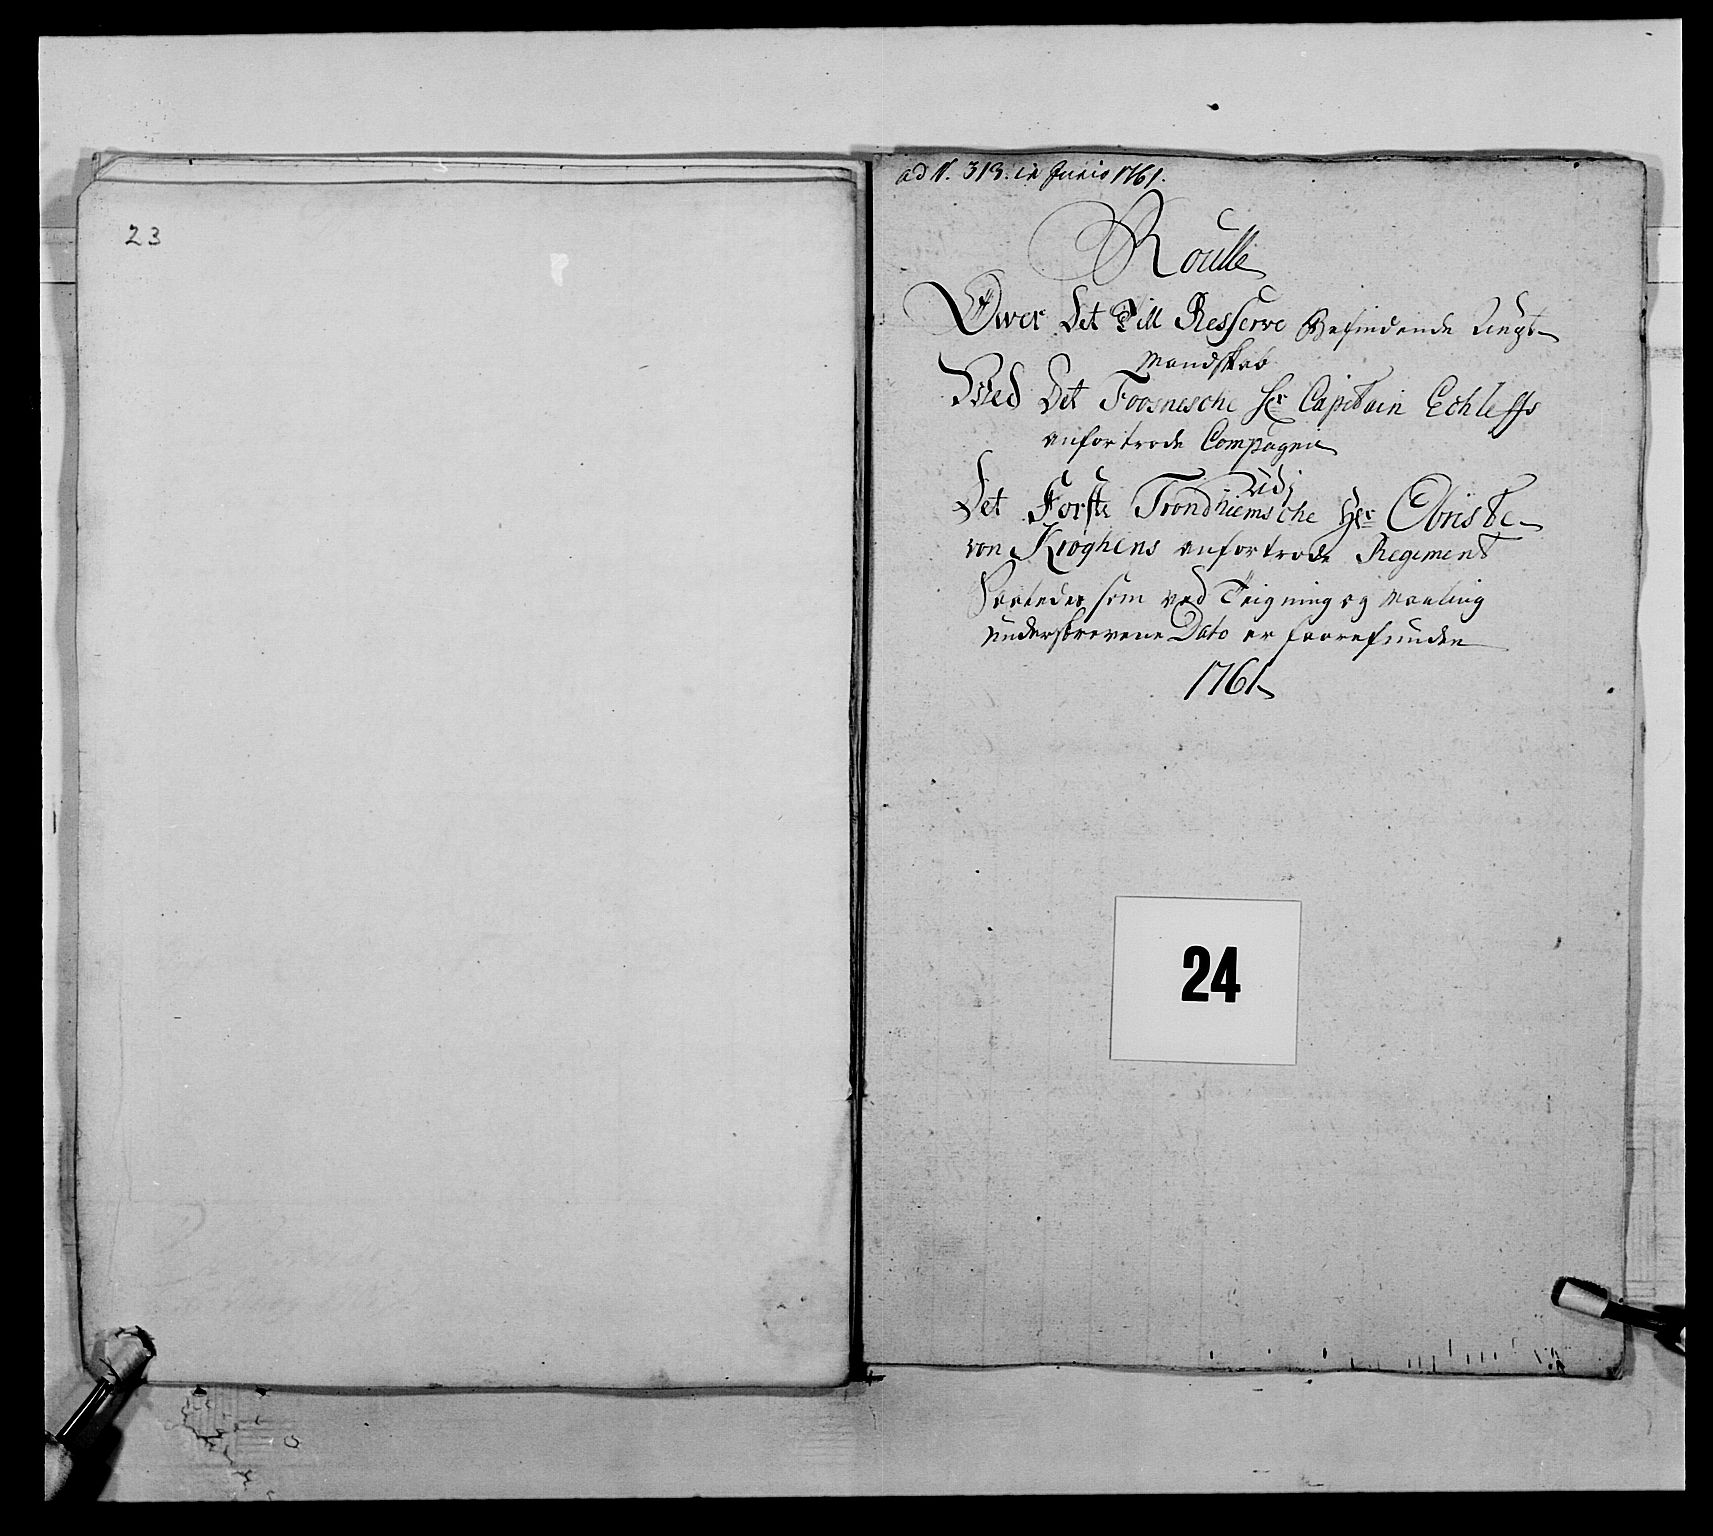 23
ad N. 313. in Junio 1761.
Roulle
Øwer Det Till Resserve Befindende Ungt
Mandskab
Wed Det Foosnesche Hr Capitain Echleffs
anfortrode Compagnie
udj
Det Forste Trondhiemsche Hr Obriste
von Kroghens anfortrode Regiment
Saaledes som ved Teigning og Maaling
underskrevene Dato er foorefunden
1761
24